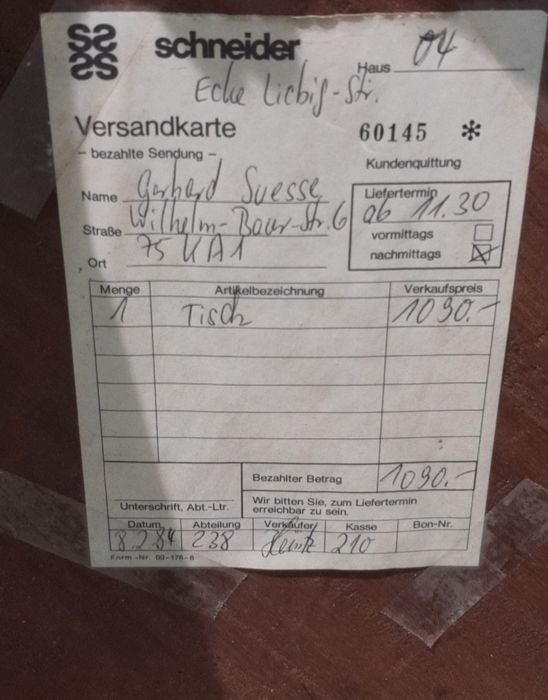 schneider
Haus 04
Ecke Liebig-Str.
Versandkarte
60145 *
– bezahlte Sendung –
Kundenquittung
Name Gerhard Suesse
Liefertermin
ab 11.30
Straße Wilhelm-Baur-Str. 6
vormittags
nachmittags
Ort 75 KA1
Menge Artikelbezeichnung Verkaufspreis
1 Tisch 1090.-
Bezahlter Betrag 1090.-
Unterschrift, Abt.-Ltr.
Wir bitten Sie, zum Liefertermin
erreichbar zu sein.
Datum Abteilung Verkäufer Kasse Bon-Nr.
8.2.84 238 210
Form.-Nr. 00-176-6